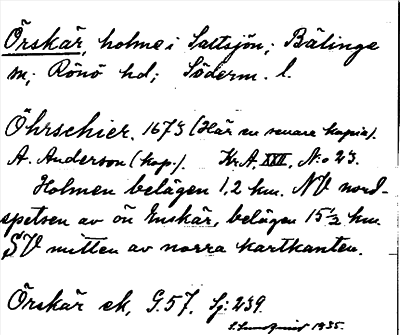 Örskär, holme i Saltsjön; Bälinge
sn; Rönö hd; Söderm. l.
Öhrschier. 1673 (Här en senare kopia).
A. Anderson (kop.). Kr. A. XXII, N:o 23.
Holmen belägen 1,2 km. NV nord-
spetsen av ön Enskär, belägen 15 1/2 km.
SV mitten av norra kartkanten.
Örskär ek, G.57. Sj: 239.
S. Lundquist 1935.